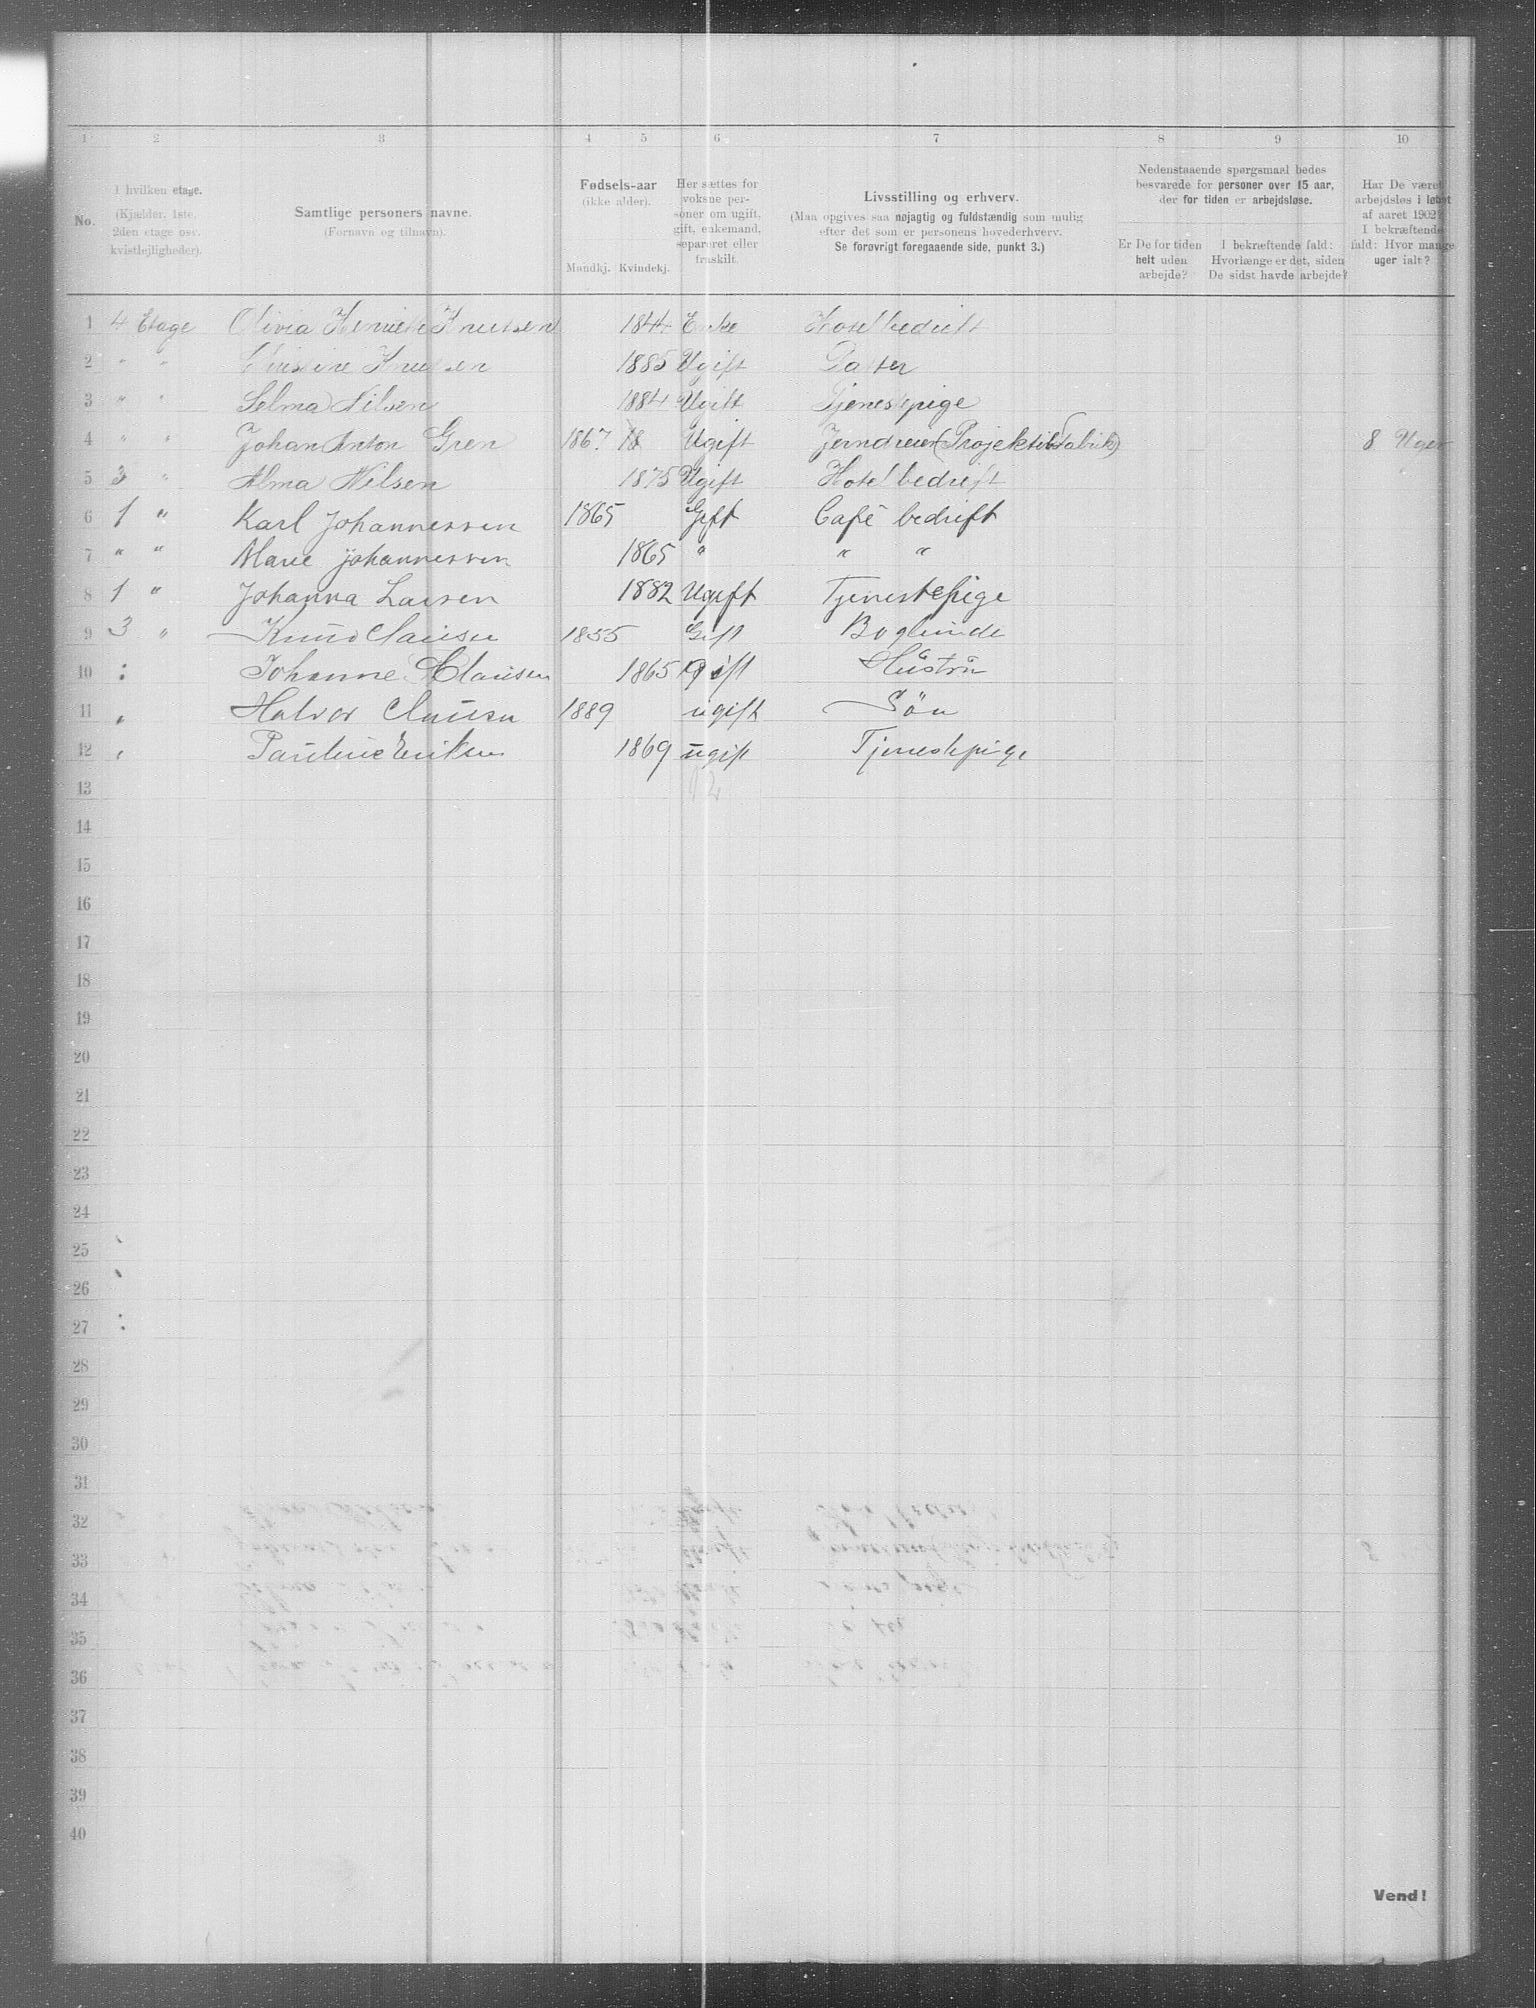 1 2 3 4 5 6 7 8 9 10
No.
I hvilken etage.
(Kjælder, 1ste,
2den etage osv.
kvistlejligheder).
Samtlige personers navne.
(Fornavn og tilnavn).
Fødsels-aar
(ikke alder).
Mandkj. Kvindekj.
Her sættes for
voksne per-
soner om ugift,
gift, enkemand,
separeret eller
fraskilt.
Livsstilling og erhverv.
(Maa opgives saa nøjagtig og fuldstændig som mulig
efter det som er personens hovederhverv.
Se forøvrigt foregaaende side, punkt 3.)
Nedenstaaende spørgsmaal bedes
besvarede for personer over 15 aar,
der for tiden er arbejdsløse.
Er De for tiden
helt uden
arbejde?
I bekræftende fald:
Hvorlænge er det, siden
De sidst havde arbejde?
Har De været
arbejdsløs i løbet
af aaret 1902?
I bekræftende
fald: Hvor mange
uger ialt?
1 4 Etage Olivia Henriette Knutsen 1844 Enke Hotelbedrift
2 " " Christine Knutsen 1885 Ugift Datter
3 " " Selma Nilsen 1884 Ugift Tjenestepige
4 " " Johan Anton Gren 1867. 18 Ugift Jerndreier (Projektilfabrik) 8 Uger
5 3 " Alma Nilsen 1875 Ugift Hotelbedrift
6 1 " Karl Johannessen 1865 Gift Café bedrift
7 " " Marie Johannessen 1865 " " "
8 1 " Johanna Larsen 1882 Ugift Tjenestepige
9 3 " Knud Clausen 1855 Gift Bogbinder
10 : Johanne Clausen 1865 Gift Hüstrü
11 " Halvor Clausen 1889 ugift Sön
12 " Pauline Eriksen 1869 ugift Tjenestepige
13 12
14
15
16
17
18
19
20
21
22
23
24
25
26
27
28
29
30
31
32
33
34
35
36
37
38
39
40
Vend!